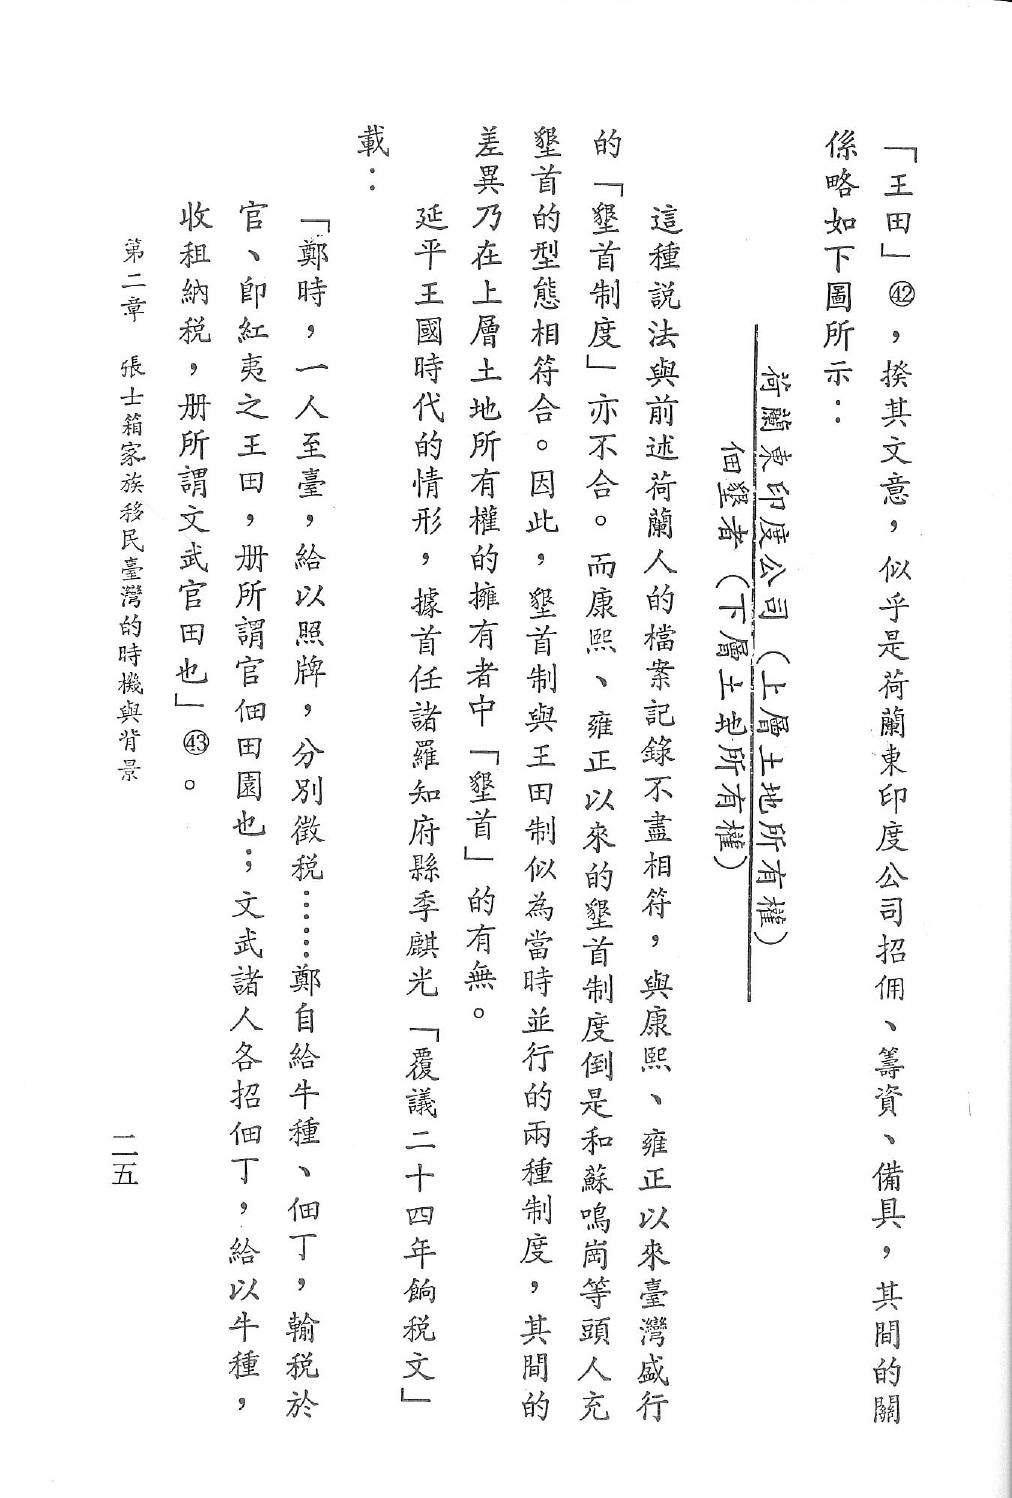 「王田」㊷，揆其文意，似乎是荷蘭東印度公司招佃、籌資、備具，其間的關
係略如下圖所示：
荷蘭東印度公司（上層土地所有權）
佃墾者（下層土地所有權）
這種説法與前述荷蘭人的檔案記錄不盡相符，與康熙、雍正以來臺灣盛行
的「墾首制度」亦不合。而康熙、雍正以來的墾首制度倒是和蘇鳴崗等頭人充
墾首的型態相符合。因此，墾首制與王田制似為當時並行的兩種制度，其間的
差異乃在上層土地所有權的擁有者中「墾首」的有無。
延平王國時代的情形，據首任諸羅知府縣季麒光「覆議二十四年餉税文」
載：
「鄭時，一人至臺，給以照牌，分別徵税……鄭自給牛種、佃丁，輸税於
官、卽紅夷之王田，册所謂官佃田園也；文武諸人各招佃丁，給以牛種，
收租納税，册所謂文武官田也」㊸。
第二章　張士箱家族移民臺灣的時機與背景
二五